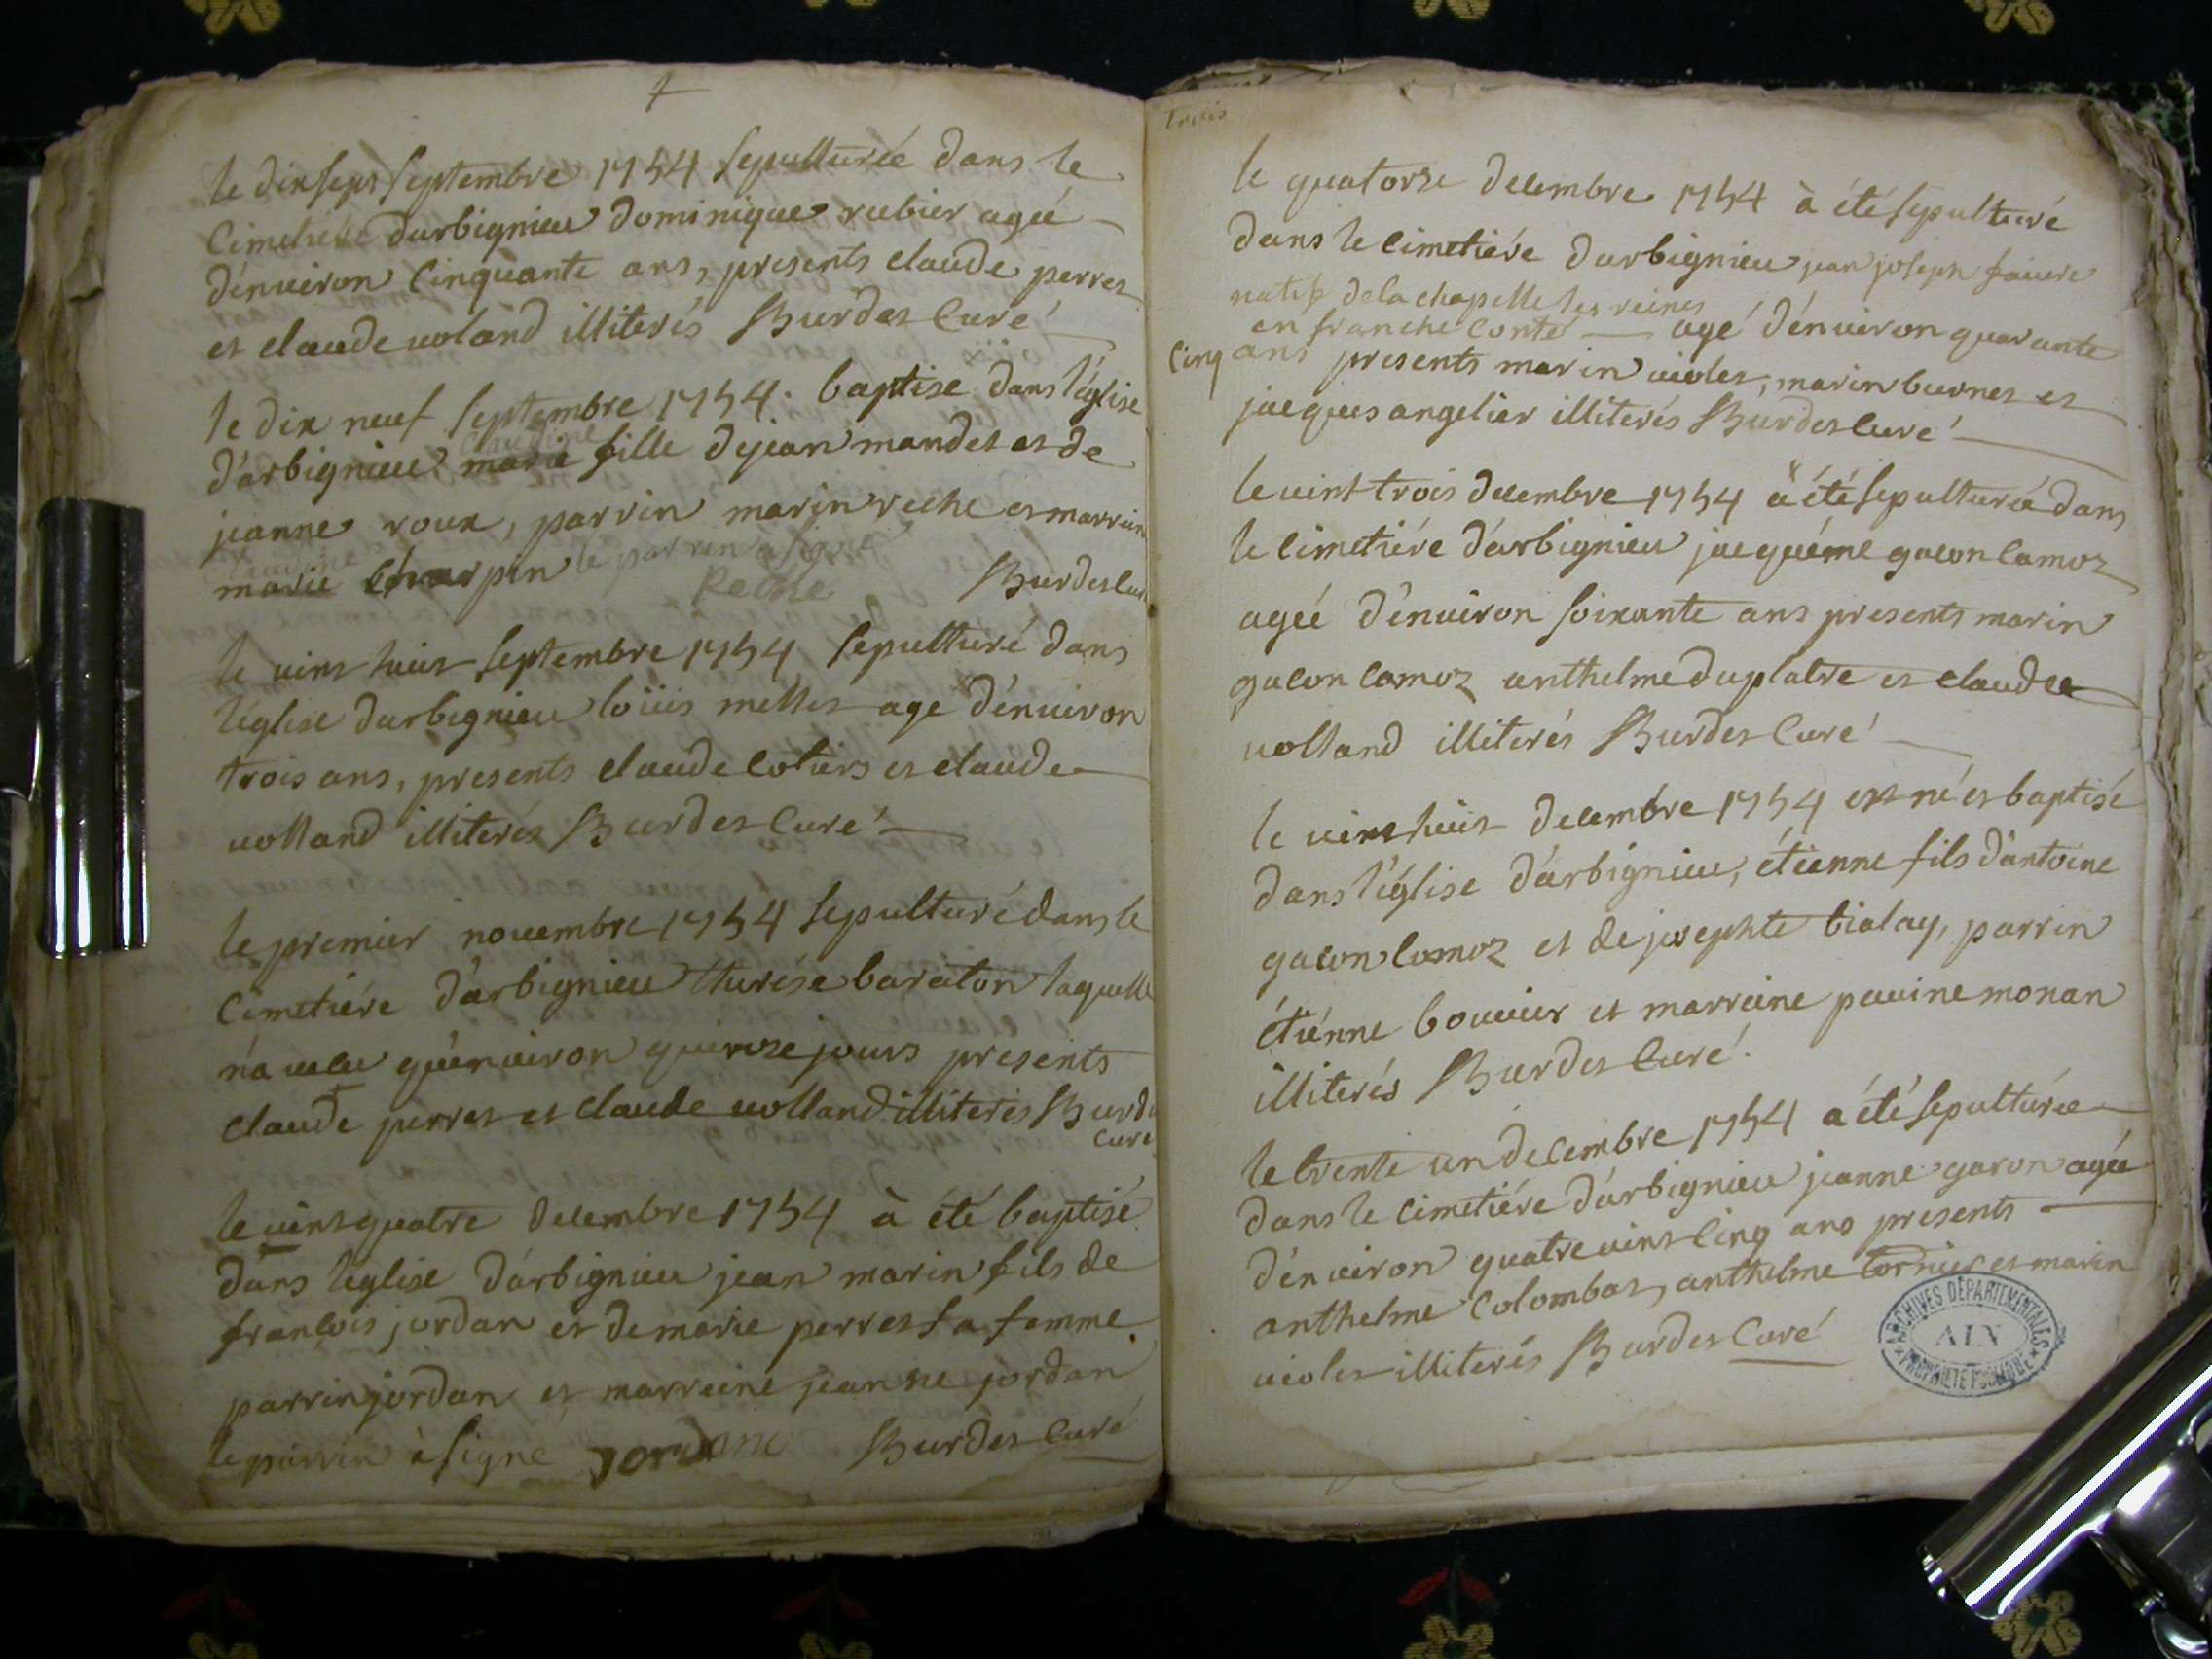 le dixsept septembre 1754 sepulturée dans le
Cimetiére darbignieu dominique rubier agée
d'enuiron Cinquante ans, presents claude perret
et claude uoland illiterés Burdet Curé
le dix neuf septembre 1754. baptise dans l'église
d'arbignieu claudine fille de jean mandet et de
jeanne roux, parrin marin reche et marreine
marie charpin le parrin a signé
Reche Burdet Cur
le uint huit septembre 1754 sepulturé dans
l'église darbignieu loüis mettet age d'énuiron
trois ans, presents claude Cotiers et claude
uolland illiterés Burdet Curé
le premier nouembre 1754 sepulturé dans le
Cimetiére d'arbignieu thurése baraton laquelle
n'a uecu qu'enuiron quinze jours présents
Claude perret et Claude uolland illiterés Burdet
Curé
le uint quatre decembre 1754 à été baptisé
dans l'eglise d'arbignieu jean marin fils de
françois jordan et de marie perret sa famme
parrin jordan et marreine jeanne jordan
le parrin à signe jordane Burdet Curé
trois
le quatorze decembre 1754 à été sepulturé
dans le Cimetiére darbignieu jean joseph faiure
natif de la chapelle les reines
en franche Conté agé d'énuiron quarante
Cinq ans presents marin uiolet, marin burnet et
jacques angelier illiterés Burdet Curé
le uint trois decembre 1754 a été sepulturée dans
le Cimetiére d'arbignieu jacquéme gacon Camoz
agéé d'énuiron soixante ans presents marin
gacon Camoz anthelme duplatre et claude
uolland illiterés Burdet Curé
le uint huit decembre 1754 est né et baptisé
dans l'église d'arbignieu, étienne fils d'antoine
gacon Camoz et de josephte tialay, parrin
étiénne bouuier et marreine pauine monan
illiterés Burdet Curé.
le trente un decembre 1754 a été sepulturée
dans le Cimetiére d'arbignieu jeanne garon agée
d'énuiron quatre uint Cinq ans presents
anthelme Colombat, anthelme tornier et marin
uiolet illiterés Burdet Curé
ARCHIVES DÉPARTEMENTALES
AIN
PROPRIÉTÉ PUBLIQUE